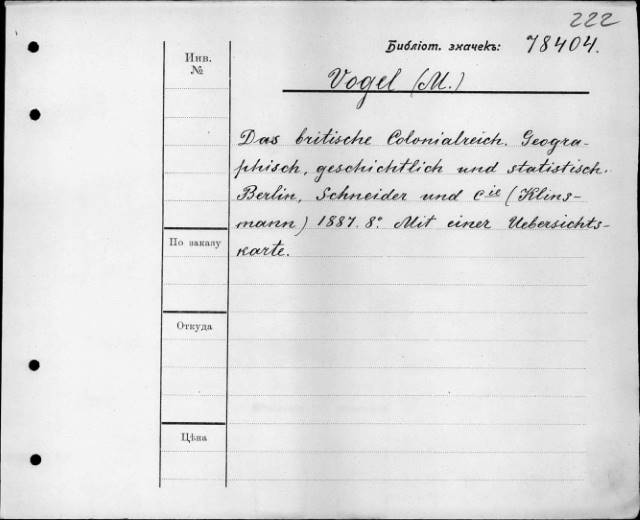 222
Библіот. значекъ: 78404.
Инв.
№
Vogel (M.)
Das britische Colonialreich. Geogra-
phisch, geschichtlich und statistisch.
Berlin, Schneider und Cie (Klins-
mann) 1887. 8º. Mit einer Uebersichts-
karte.
По заказу
Откуда
Цѣна